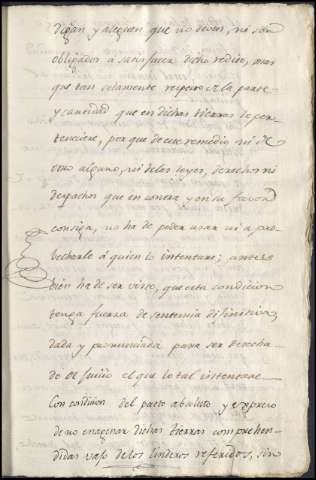 digan y aleguen que no deven, ni son
obligados à satisfacer dicho redito, mas
que tan solamente respecto de la parte
y cantidad que en dichas tierras le per-
teneciere, porque de este remedio ni de
otro alguno, ni de las leyes, derechos ni
despachos que en contra y en su favor
consiga, no ha de poder usar ni apro-
becharle à quien lo intentare; antes
bién ha de ser visto, que esta condicion
tenga fuerza de sentencia difinitiva,
dada y pronunciada para ser desecha-
do de juicio el que lo tal intentare
Con condicion del pacto absoluto y expreso
de no enagenar dichas tierras comprehen-
didas vaxo de los linderos referidos, sin